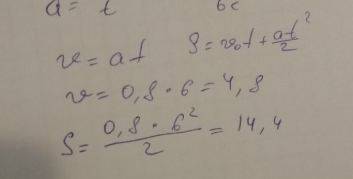 a = t 6c
v = at S = v₀t + at²/2
v = 0,8 · 6 = 4,8
S = 0,8 · 6²/2 = 14,4